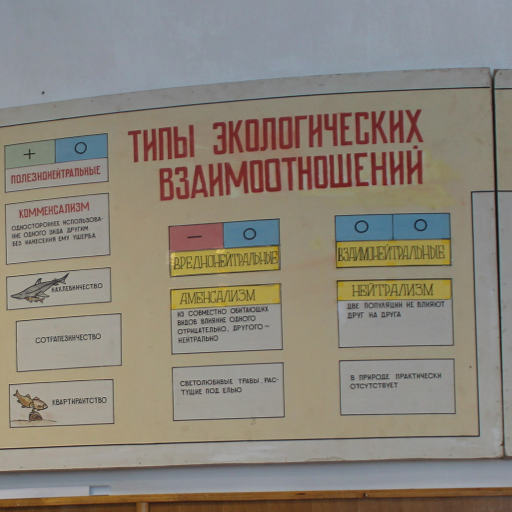 ТИПЫ ЭКОЛОГИЧЕСКИХ
ВЗАИМООТНОШЕНИЙ
+ О
ПОЛЕЗНОНЕЙТРАЛЬНЫЕ
КОММЕНСАЛИЗМ
ОДНОСТОРОННЕЕ ИСПОЛЬЗОВА-
НИЕ ОДНОГО ВИДА ДРУГИМ
БЕЗ НАНЕСЕНИЯ ЕМУ УЩЕРБА
НАХЛЕБНИЧЕСТВО
СОТРАПЕЗНИЧЕСТВО
КВАРТИРАНТСТВО
— О
ВРЕДНОНЕЙТРАЛЬНЫЕ
АМЕНСАЛИЗМ
ИЗ СОВМЕСТНО ОБИТАЮЩИХ
ВИДОВ ВЛИЯНИЕ ОДНОГО
ОТРИЦАТЕЛЬНО, ДРУГОГО —
НЕЙТРАЛЬНО
СВЕТОЛЮБИВЫЕ ТРАВЫ, РАС-
ТУЩИЕ ПОД ЕЛЬЮ
О О
ВЗАИМОНЕЙТРАЛЬНЫЕ
НЕЙТРАЛИЗМ
ДВЕ ПОПУЛЯЦИИ НЕ ВЛИЯЮТ
ДРУГ НА ДРУГА
В ПРИРОДЕ ПРАКТИЧЕСКИ
ОТСУТСТВУЕТ